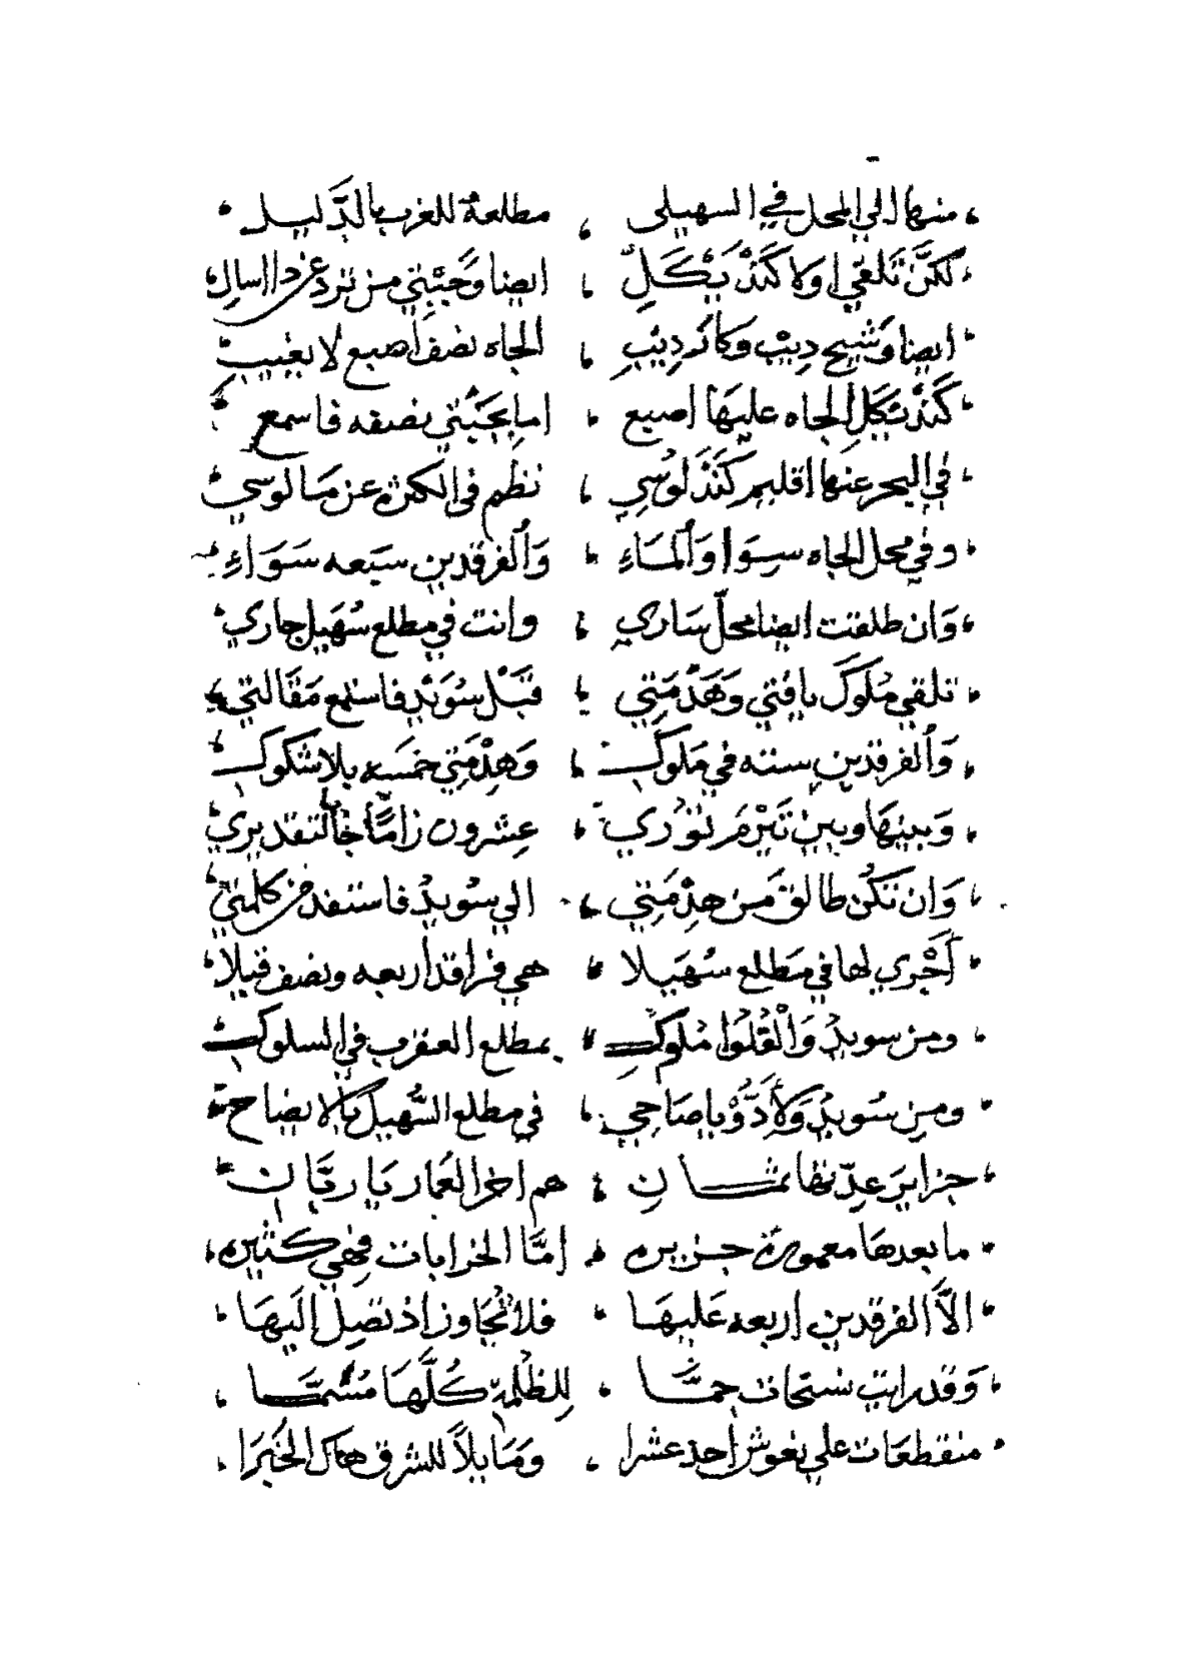 منها الي المحل في السهيلى ، مطلعهُ للغرب بالدَّليل
لكنَّ تَلقي اولا كَنْدَ يَكَلِّ ، ايضا وَجَبْتِي من ترد عن ذا اسال
ايضا وَشيح دِيبْ وكانَ دِيْبِ ، الجاه نصف اصبع لا يغيب
كَنْدَ يَكَلِ الجاه عليهَا اصبع ، اما بِجَبْتي نصفه فاسمع
في البحر عنها اقليم كَنْدَ لوُسِي ، نظم في الكنز عن مالوسي
وفي محل الجاه سِوَا وَالمَاءِ ، وَالفرقدين سَبعه سَوَاءِ
وَان طلقت ايضا محلّ سَاري ، وانت في مطلع سُهَيل جاري
تلقي مُلوكَ يا فتي وَهَدْمَتِي ، قبَل سُوَيْدِ فاستمع مَقَالتي
وَالفرقدين سته في مَلوك ، وَهدْمَتِي خمسَه بلا شكوك
وَبينهَا وبين تَيْزمَ تورِي ، عِشرون زامًا خُذ لتقديري
وَان تكُن طالق من هدْمَتِي ، الي سُويدُ فاستفد من كلمتي
أَجْري لها في مَطلع سُهَيلا ، هي فراقد أربعه ونصف قيلا
ومن سويدُ وَالقُلُوا مُلوكِ ، بمطلع العقرب في السلوك
ومن سُويدُ وَلأدَّوْ يا صَاحِي ، في مطلع السُّهيل بالايضاح
جزايرَ عدّتها ثمان ، هم اخر العَمار يَا ربَّان
ما بعدهَا معمورة جزيره ، امَّا الخرابات فهي كثيره
الاَّ الفرقدين اربعه عَليهَا ، فلا تُجَاوز اذ تصِل إليهَا
وَقد رايت شحات جمَّا ، لِلظُلمةِ كُلَّهَا مُسَمَّا
منقطعَات علي نعوش احد عشرا ، وَمَا يلاً للشرق هَاك الخَبَرا